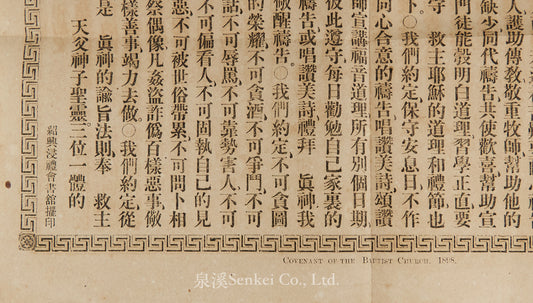 人護助傳教敬重牧師幫助他的
缺少同代禱告共使歡喜幫助宣
門徒能彀明白道理習學正直要
守 救主耶穌的道理和禮節也
下○我們約定保守安息日不作
同心合意的禱告唱讚美詩頌讚
師宣講福音道理所有別個日期
彼此遵守每日勸勉自己家裏的
禱告或唱讚美詩禮拜 眞神我
儆醒禱告○我們約定不可貪圖
的榮耀不可貪酒不可爭鬥不可
話不可辱罵不可靠勢害人不可
不可偏看人不可固執自己的見
惡不可被世俗帶累不可問卜相
祭偶像凡姦盜詐僞百樣惡事
樣善事竭力去做○我們約定從
是 眞神的諭旨法則奉 救主
天父神子聖靈三位一體的
紹興浸禮會書館擺印
COVENANT OF THE BAPTIST CHURCH, 1898.
泉溪Senkei Co., Ltd.